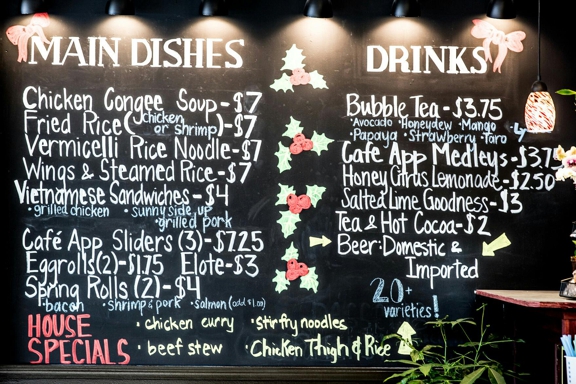 MAIN DISHES
Chicken Congee Soup-$7
Fried Rice (chicken or shrimp)-$7
Vermicelli Rice Noodle-$7
Wings & Steamed Rice-$7
Vietnamese Sandwiches-$4
•grilled chicken •sunny side up
•grilled pork
Café App Sliders (3)-$7.25
Eggrolls(2)-$1.75 Elote-$3
Spring Rolls (2)-$4
•bacon •shrimp & pork •salmon (add $1.00)
HOUSE SPECIALS
•chicken curry •stir fry noodles
•beef stew •Chicken Thigh & Rice
DRINKS
Bubble Tea-$3.75
•Avocado •Honeydew •Mango
•Papaya •Strawberry •Taro
Cafe App Medleys-$3.7
Honey Citrus Lemonade-$2.50
Salted Lime Goodness-$3
Tea & Hot Cocoa-$2
Beer: Domestic &
Imported
20+
varieties!